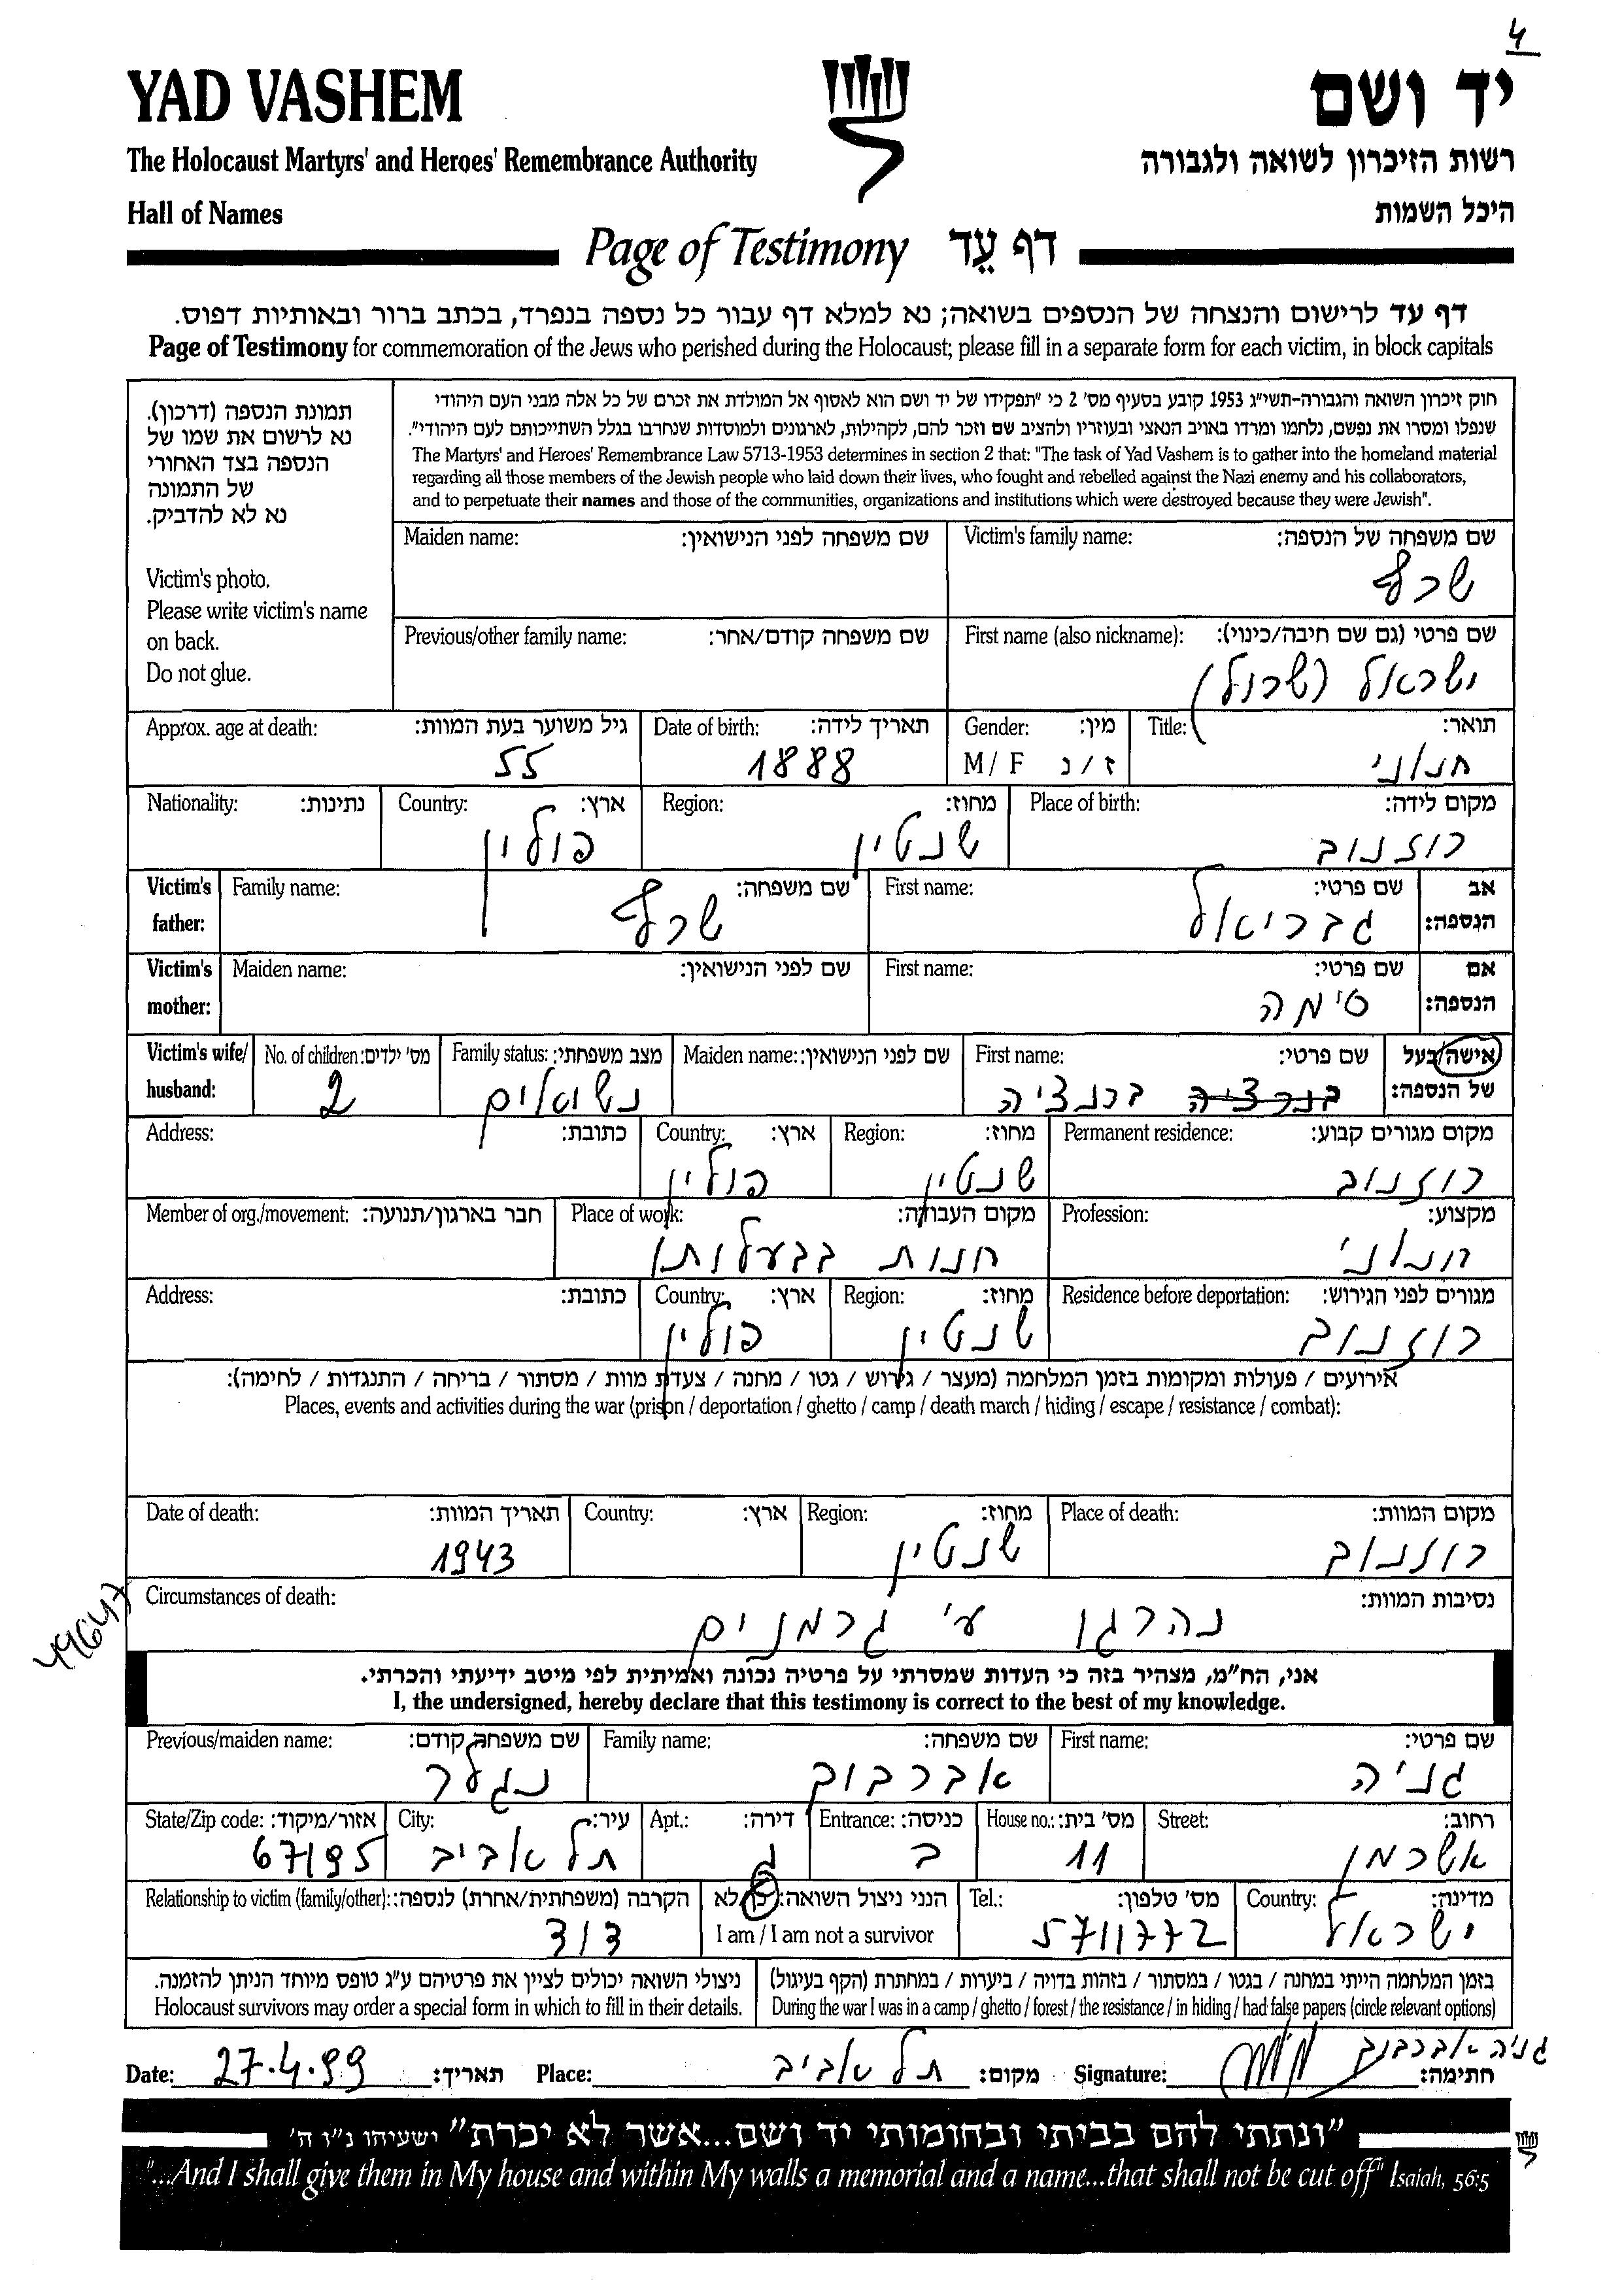 4
YAD VASHEM
יד ושם
The Holocaust Martyrs' and Heroes' Remembrance Authority
רשות הזיכרון לשואה ולגבורה
Hall of Names
היכל השמות
Page of Testimony דף עֵד
דף עד לרישום והנצחה של הנספים בשואה; נא למלא דף עבור כל נספה בנפרד, בכתב ברור ובאותיות דפוס.
Page of Testimony for commemoration of the Jews who perished during the Holocaust; please fill in a separate form for each victim, in block capitals
תמונת הנספה (דרכון).
נא לרשום את שמו של
הנספה בצד האחורי
של התמונה
נא לא להדביק.
Victim's photo.
Please write victim's name
on back.
Do not glue.
חוק זיכרון השואה והגבורה-תשי"ג 1953 קובע בסעיף מס' 2 כי "תפקידו של יד ושם הוא לאסוף אל המולדת את זכרם של כל אלה מבני העם היהודי
שנפלו ומסרו את נפשם, נלחמו ומרדו באויב הנאצי ובעוזריו ולהציב שם וזכר להם, לקהילות, לארגונים ולמוסדות שנחרבו בגלל השתייכותם לעם היהודי".
The Martyrs' and Heroes' Remembrance Law 5713-1953 determines in section 2 that: "The task of Yad Vashem is to gather into the homeland material
regarding all those members of the Jewish people who laid down their lives, who fought and rebelled against the Nazi enemy and his collaborators,
and to perpetuate their names and those of the communities, organizations and institutions which were destroyed because they were Jewish".
שם משפחה של הנספה: Victim's family name: שם משפחה לפני הנישואין: Maiden name:
שרף
שם פרטי (גם שם חיבה/כינוי): First name (also nickname): שם משפחה קודם/אחר: Previous/other family name:
ישראל (שרול)
תואר: Title: מין: Gender: תאריך לידה: Date of birth: גיל משוער בעת המוות: Approx. age at death:
חנוני ז / נ M / F 1888 55
מקום לידה: Place of birth: מחוז: Region: ארץ: Country: נתינות: Nationality:
רוזנוב שנטין פולין
אב הנספה: שם פרטי: First name: שם משפחה: Family name: Victim's father:
גבריאל שרף
אם הנספה: שם פרטי: First name: שם לפני הנישואין: Maiden name: Victim's mother:
סימה
אישה/בעל של הנספה: שם פרטי: First name: שם לפני הנישואין: Maiden name: מצב משפחתי: Family status: מס' ילדים: No. of children: Victim's wife/ husband:
ברנציה נשואים 2
מקום מגורים קבוע: Permanent residence: מחוז: Region: ארץ: Country: כתובת: Address:
רוזנוב שנטין פולין
מקצוע: Profession: מקום העבודה: Place of work: חבר בארגון/תנועה: Member of org./movement:
חנוני חנות בבעלותו
מגורים לפני הגירוש: Residence before deportation: מחוז: Region: ארץ: Country: כתובת: Address:
רוזנוב שנטין פולין
אירועים / פעולות ומקומות בזמן המלחמה (מעצר / גירוש / גטו / מחנה / צעדת מוות / מסתור / בריחה / התנגדות / לחימה):
Places, events and activities during the war (prison / deportation / ghetto / camp / death march / hiding / escape / resistance / combat):
מקום המוות: Place of death: מחוז: Region: ארץ: Country: תאריך המוות: Date of death:
רוזנוב שנטין 1943
נסיבות המוות: Circumstances of death:
נהרגו ע' גרמנים
49647
אני, הח"מ, מצהיר בזה כי העדות שמסרתי על פרטיה נכונה ואמיתית לפי מיטב ידיעתי והכרתי.
I, the undersigned, hereby declare that this testimony is correct to the best of my knowledge.
שם פרטי: First name: שם משפחה: Family name: שם משפחה קודם: Previous/maiden name:
גניה אברבוב נגלר
רחוב: Street: מס' בית: House no.: כניסה: Entrance: דירה: Apt.: עיר: City: אזור/מיקוד: State/Zip code:
אשרמן 11 ב תל אביב 67195
מדינה: Country: מס' טלפון: Tel.: הנני ניצול השואה: כן/לא הקרבה (משפחתית/אחרת) לנספה: Relationship to victim (family/other):
ישראל 5711772 I am / I am not a survivor דוד
בזמן המלחמה הייתי במחנה / בגטו / במסתור / בזהות בדויה / ביערות / במחתרת (הקף בעיגול)
During the war I was in a camp / ghetto / forest / the resistance / in hiding / had false papers (circle relevant options)
ניצולי השואה יכולים לציין את פרטיהם ע"ג טופס מיוחד הניתן להזמנה.
Holocaust survivors may order a special form in which to fill in their details.
גניה אברבוב
Date: 27.4.99 תאריך: Place: תל אביב מקום: Signature: חתימה:
"ונתתי להם בביתי ובחומותי יד ושם...אשר לא יכרת" ישעיהו נ"ו ה'
"...And I shall give them in My house and within My walls a memorial and a name...that shall not be cut off" Isaiah, 56:5